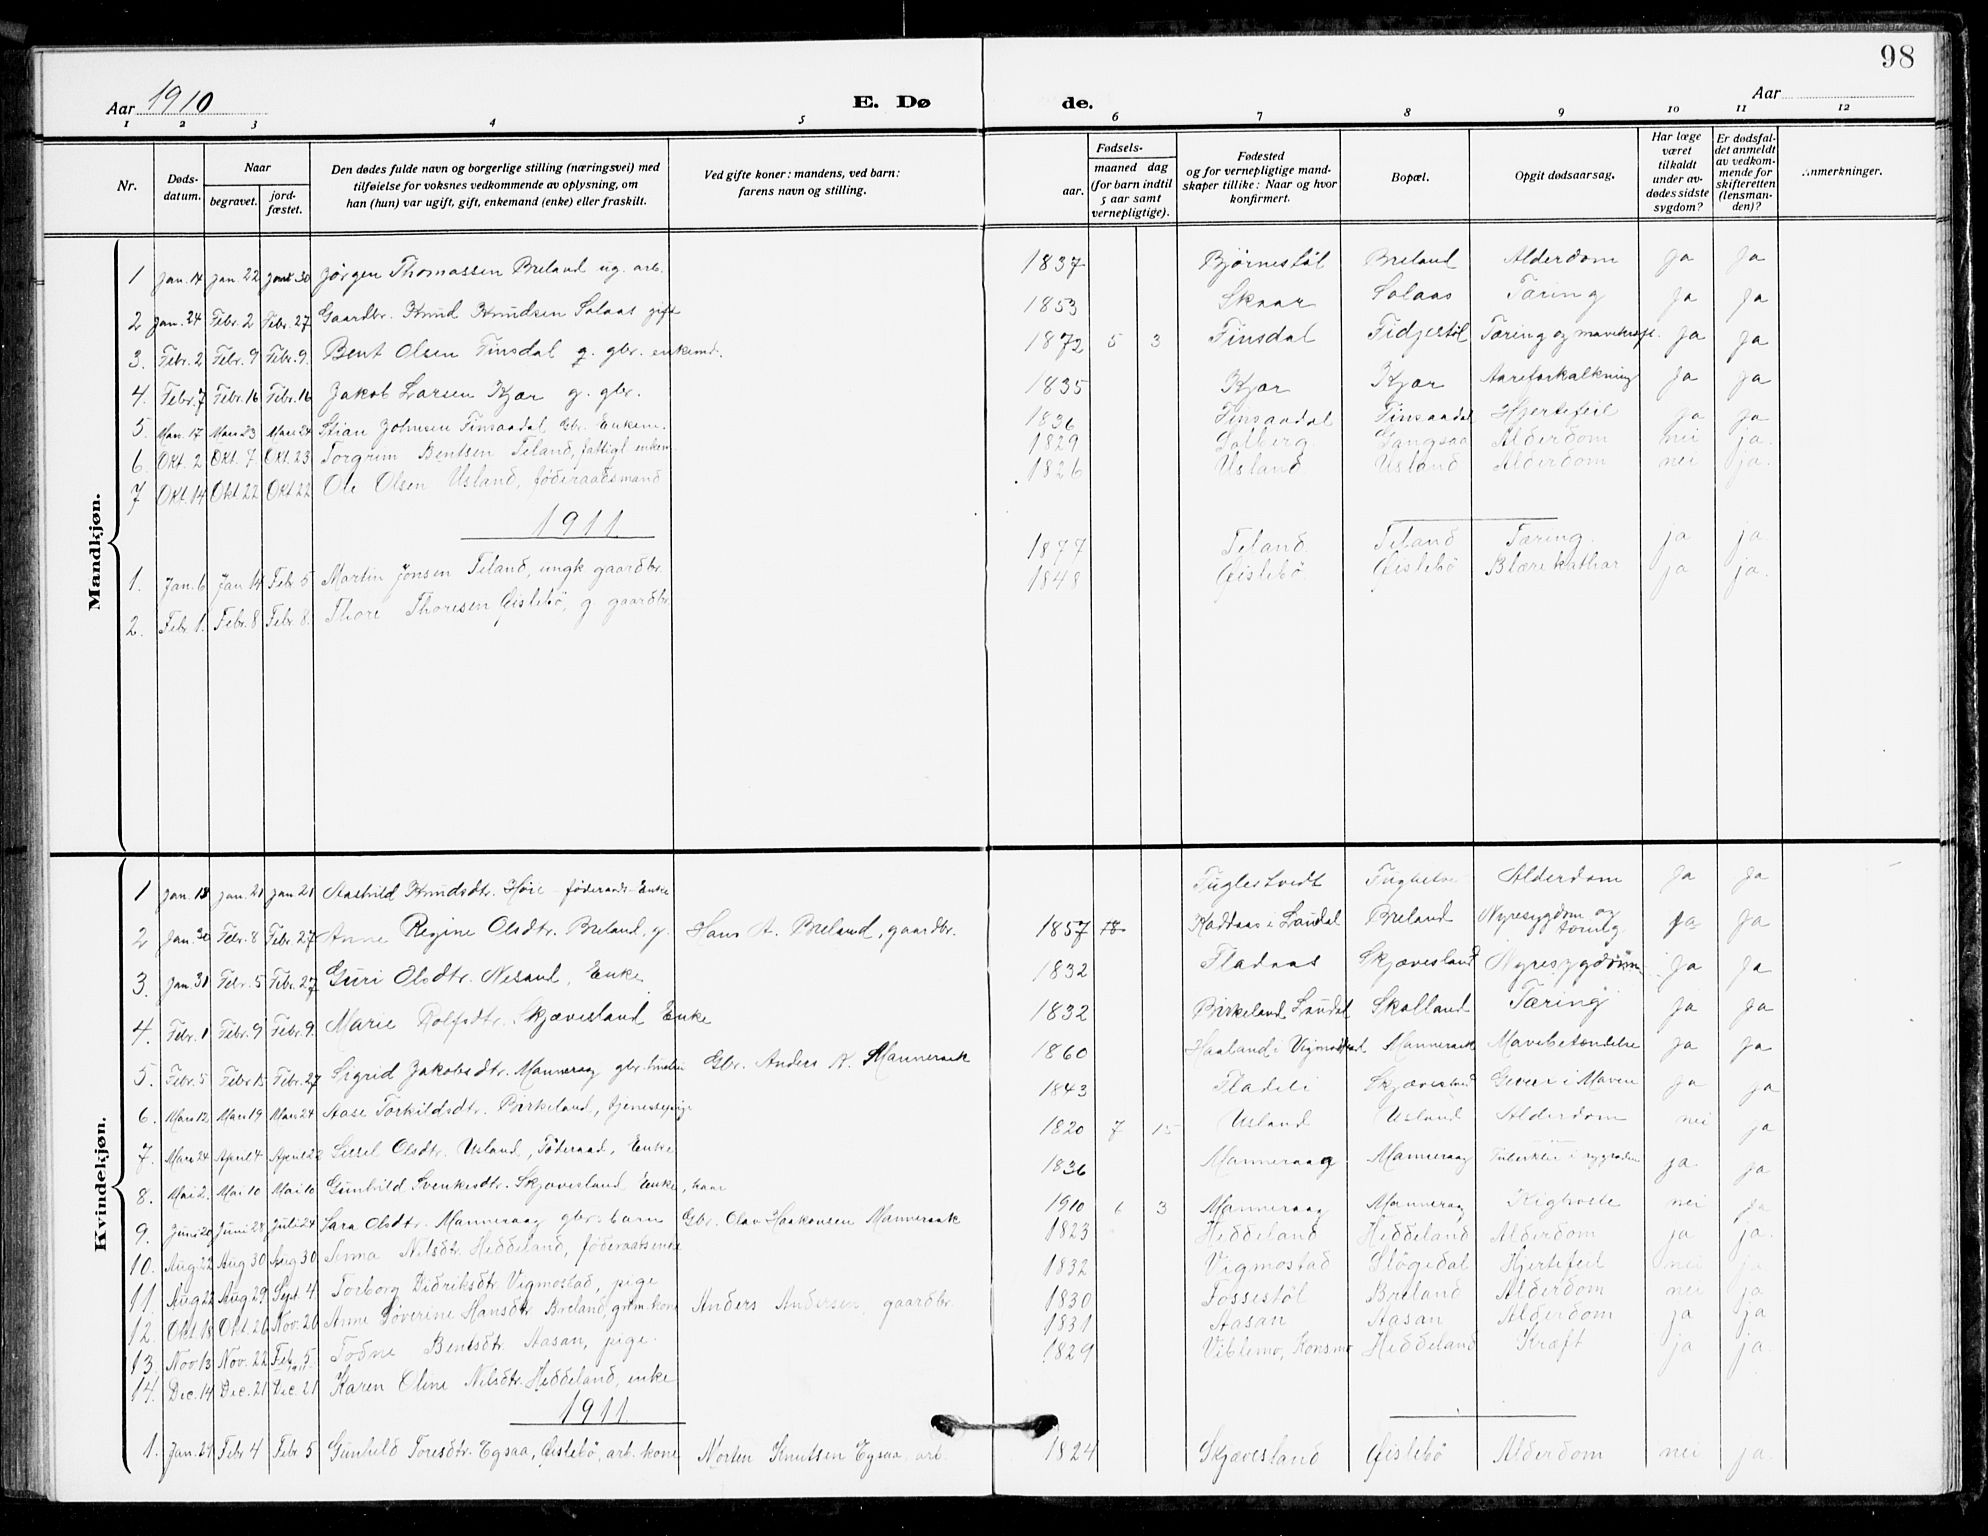 98
Aar 1910 E. Dø de. Aar
1 2 3 4 5 6 7 8 9 10 11 12
Nr. Døds-datum. Naar begravet. jord-fæstet. Den dødes fulde navn og borgerlige stilling (næringsvei) med tilføielse for voksnes vedkommende av oplysning, om han (hun) var ugift, gift, enkemand (enke) eller fraskilt. Ved gifte koner: mandens, ved barn: farens navn og stilling. Fødsels- aar. maaned dag (for barn indtil 5 aar samt vernepligtige). Fødested og for vernepligtige mand-skaper tillike: Naar og hvor konfirmert. Bopæl. Opgit dødsaarsag. Har læge været tilkaldt under av-dødes sidste sygdom? Er dødsfal-det anmeldt av vedkom-mende for skifteretten (lensman-den)? Anmerkninger.
Mandkjøn.
1 Jan. 14 Jan. 22 Jan. 30 Jørgen Thomassen Breland ug. arb. 1837 Bjørnestøl Breland Alderdom Ja Ja
2 Jan. 24 Febr. 2 Febr. 27 Gaardbr. Knud Knudsen Solaas gift 1853 Skaar Solaas Tæring Ja Ja
3. Febr. 2 Febr. 9 Febr. 9. Bent Olsen Finsdal g. gbr. enkemd. 1872 5 3 Finsdal Fidjestøl Tæring og Ja Ja
4. Febr. 7 Febr. 16 Febr. 16 Jakob Larsen Kjær g. gbr. 1835 Kjær Kjær Aareforkalkning Ja Ja
5. Mars 17 Mars 23 Mars 24 Stian Johnsen Finsaadal Gbr. Enkem. 1836 Finsaadal Finsaadal Hjertefeil ja Ja
6. Okt. 2 Okt. 7 Okt. 23 Torgrim Bentsen Teland, fattigl. enkem. 1829 Solberg Gangsaa Alderdom nei ja.
7 Okt. 14 Okt. 22 Okt. 22 Ole Olsen Usland, føderaadsmand 1826 Usland Usland Alderdom nei ja.
1911
1. Jan. 6 Jan. 14 Feb. 5 Martin Jonsen Teland, ungk gaardbr. 1877 Teland Teland Tæring. ja ja.
2. Febr. 1. Febr. 8 Febr. 8. Thore Thoresen Øislebø, g. gaardbr. 1848 Øislebø Øislebø Blærekathar ja ja.
Kvindekjøn.
1 Jan. 13 Jan. 21 Jan 21 Aashild Knudsdtr. Høie føderaads-Enke Fuglestvedt Alderdom Ja Ja
2 Jan. 30 Febr. 8 Febr. 27 Anne Regine Olsdtr. Breland, g. Hans A. Breland, gaardbr. 1857 18 Kaddaas i Laudal Breland Nyresygdom og Ja Ja
3. Jan. 31 Febr. 5 Febr. 27 Guri Olsdtr. Nesand, Enke 1832 Fladaas Skjævesland Nyresygdom Ja Ja
4. Febr. 1 Febr. 9 Febr. 9. Marie Rolfsdtr. Skjævesland Enke 1832 Birkeland Laudal Skalland Tæring Ja Ja
5. Febr. 5 Febr. 15 Febr. 27 Sigrid Jakobsdtr. Manneraag gbr. hustru Gbr. Anders K. Manneraak 1860 Haaland i Vigmostad Manneraak Mavebetændelse Ja Ja
6. Mars 12 Mars 19 Mars 24 Aase Torkildsdtr. Birkeland, tjenestepige 1843 Fladeli Skjævesland i Maven Ja Ja
7. Mars 24 April 4 April 22 Sissel Olsdtr. Usland, Føderaad, Enke 1820 7 15 Usland Usland Alderdom nei ja
8. Mai 2. Mai 10 Mai 10 Gunhild Svenkesdtr. Skjævesland Enke, 1836 Manneraag Manneraag i rygraden ja ja
9. Juni 20 Juni 28 Juli 24 Sara Olsdtr. Manneraag gbr. barn Gbr. Olav Haakonsen Manneraak 1910 6 3 Manneraag Manneraag Kighoste nei ja
10. Aug 22 Aug 30 Aug 30 Anna Nilsdtr. Heddeland, føderaadsenke 1823 Heddeland Heddeland Alderdom ja ja.
11. Aug 22 Aug 29 Sept. 4 Torborg Didriksdtr. Vigmostad, pige 1832 Vigmostad Støgedal Hjertefeil nei ja
12. Okt. 18 Okt. 26 Nov. 20 Anne Søverine Hansdtr. Breland, grm. kone Anders Andersen, gaardbr. 1830 Fossestøl Breland Alderdom nei ja
13. Nov. 13 Nov. 22 Feb. 5. 1911 Todne Bentsdtr. Aasan, pige. 1831 Aasan Aasan Alderdom ja ja
14. Dec. 14 Dec. 21 Dec. 21 Karen Oline Nilsdtr. Heddeland, enke 1829 Viblemo, Konsmo Heddeland Kræft ja ja.
1911
1. Jan. 27 Febr 4 Febr 5 Gunhild Toresdtr. Egsaa, Øislebø, arb. kone Morten Knutsen Egsaa, arb. 1824 Skjævesland Øislebø Alderdom nei ja.